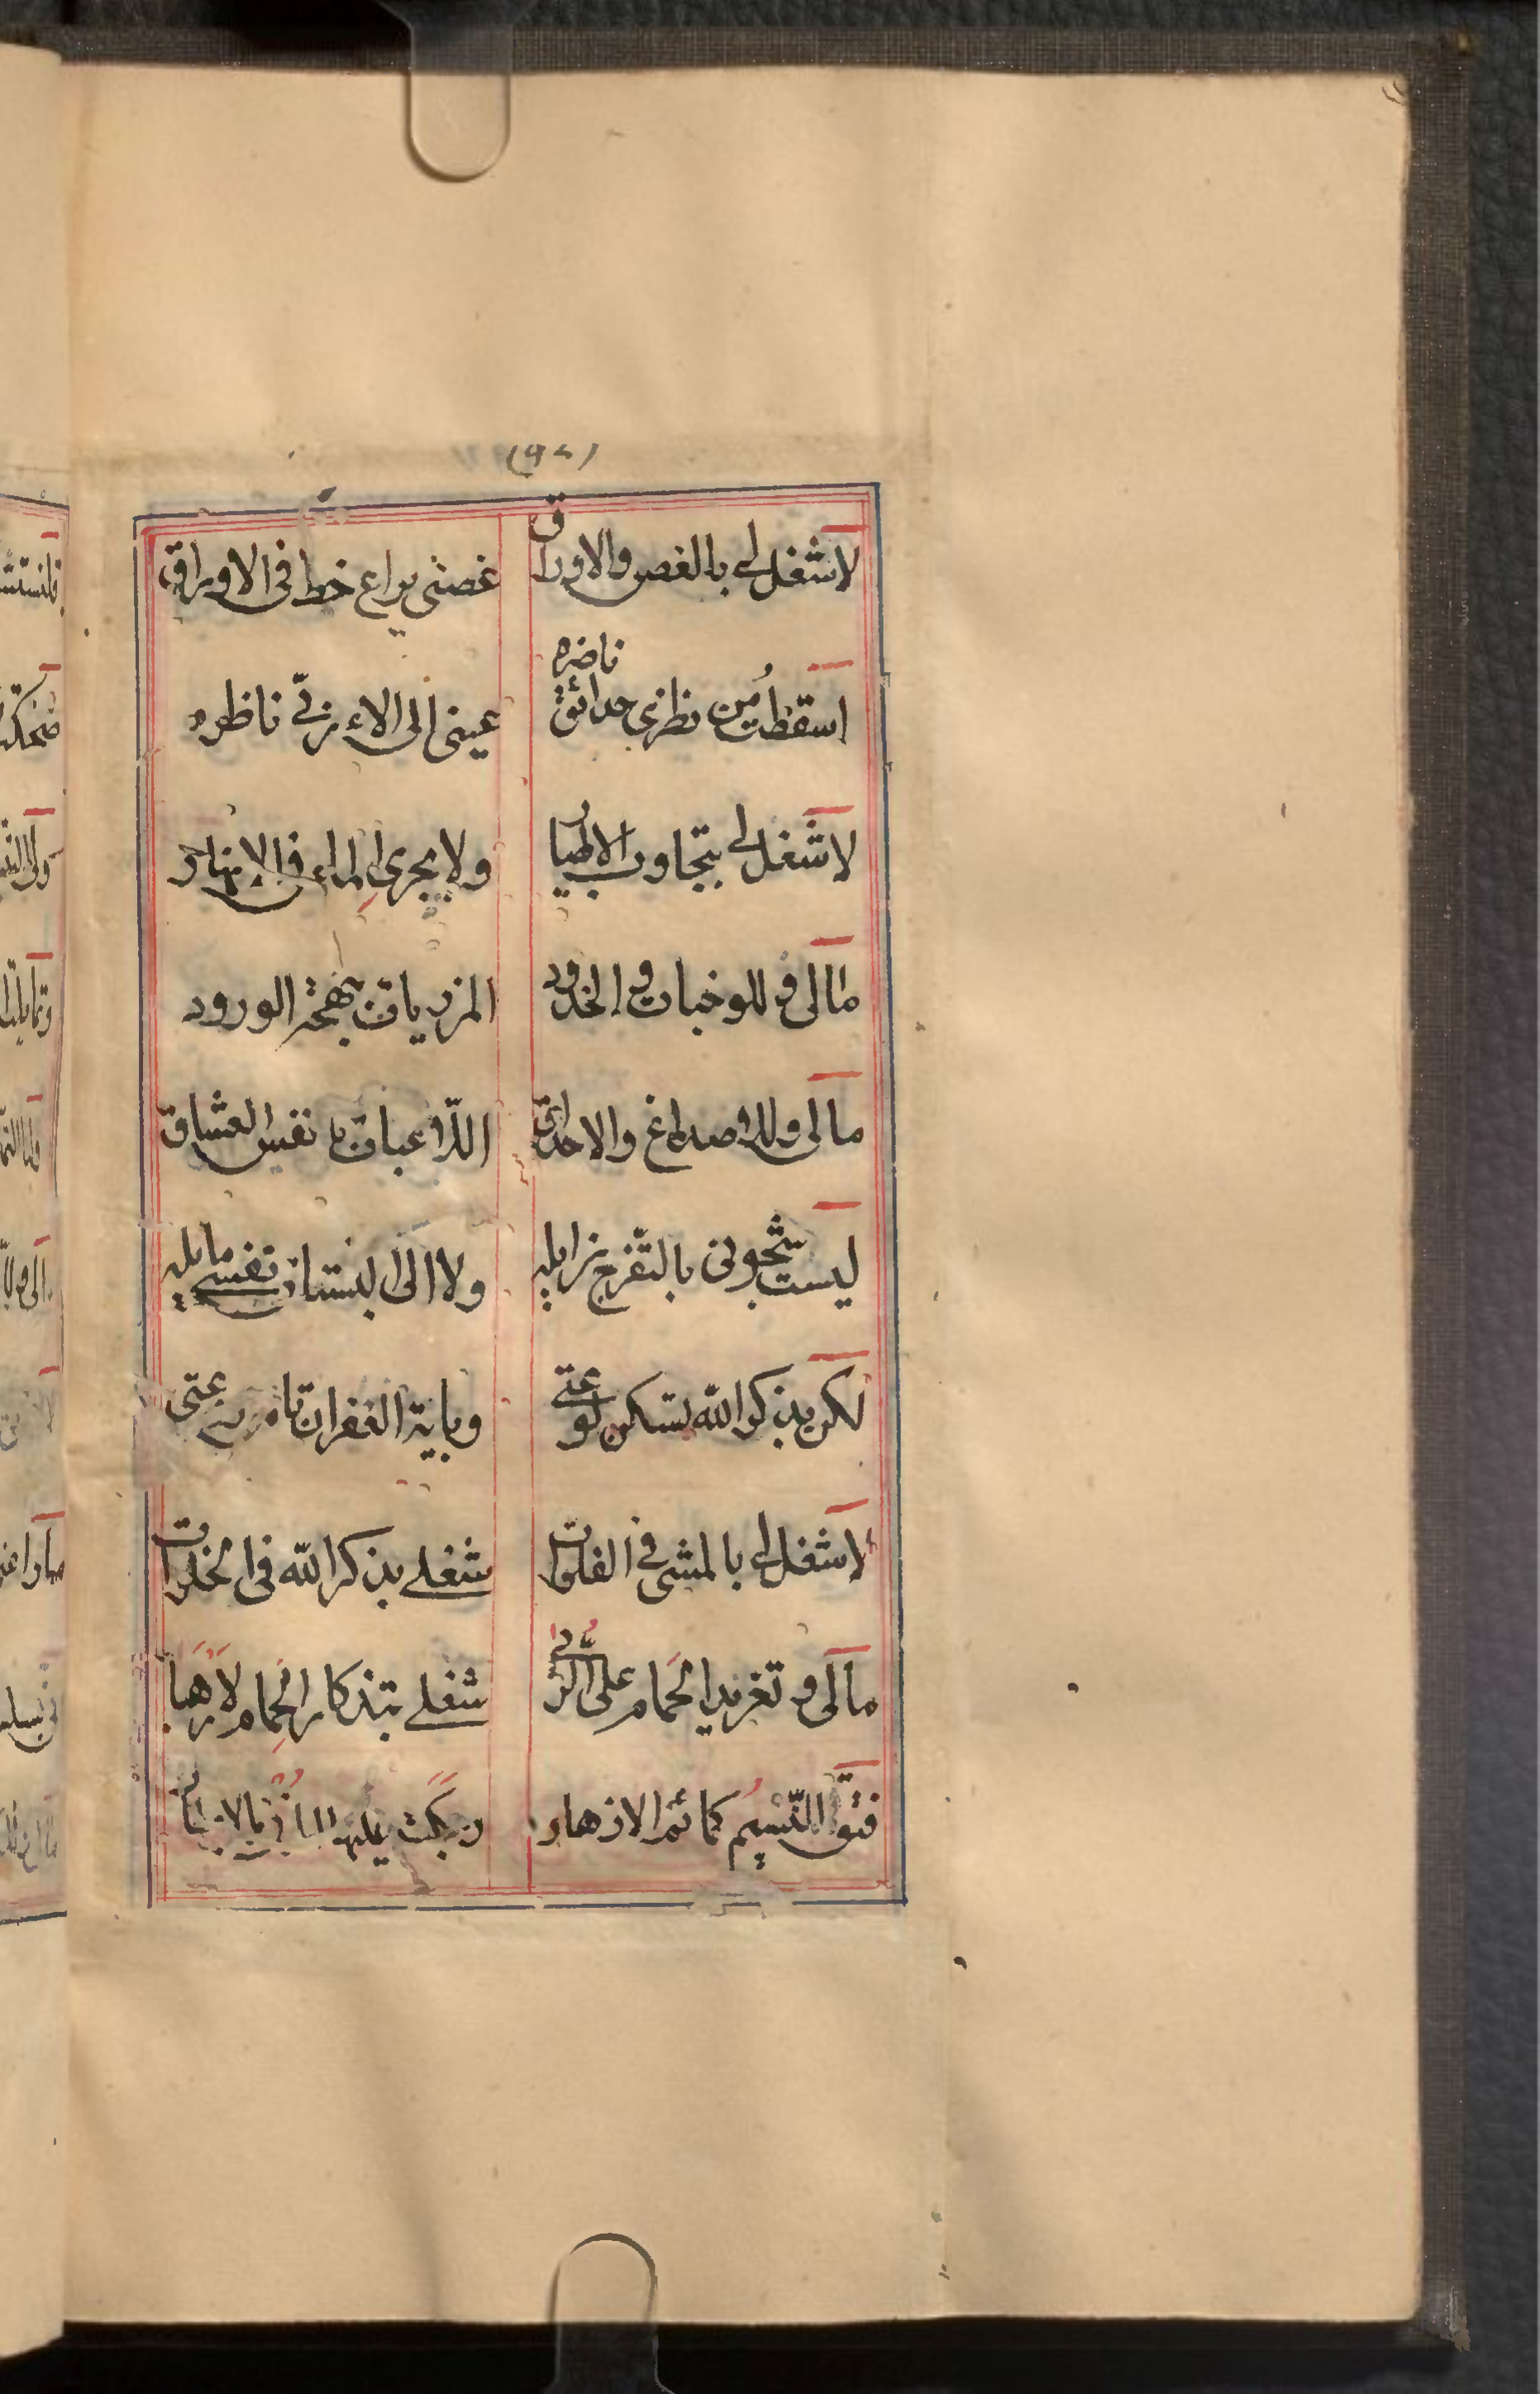 (٩٢)
لا شغل لي بالغصن والاوراق غصنى يراع خط فى الاوراق
اسقطت من نظرى حدائق ناضره عينى الى الاء ربّى ناظره
لا شغل لي بتجاوب الاطيار ولا بجرى الماء فى الانهار
مالى وللوجنات والخدود المزريات بهجة الورود
مالى وللاصداغ والاحداق اللاعبات بانفس العشاق
ليست شجونى بالتّفرج زايله ولا الى البستان نفسي مايله
لكن بذكر الله تسكن لوعتى وباية الغفران تامن روعتى
لا شغل لي بالمشى في الفلوات شغلي بذكر الله فى الخلوات
مالى وتغريد الحَمام على الرّبى شغلي بتذكار الحِمام لاَرهَبا
فتق النّسيم كمائم الازهار